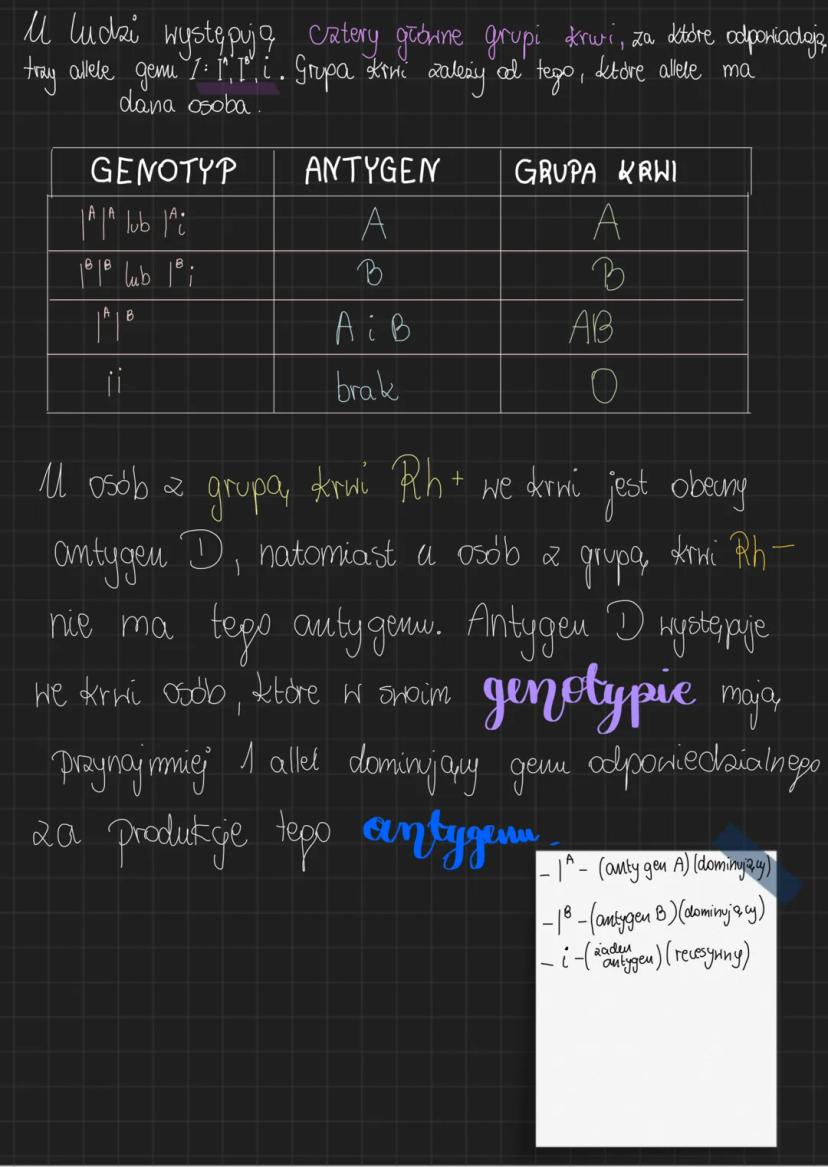 U ludzi występują cztery główne grupi krwi, za które odpowiadają
trzy allele genu I: Iᴬ, Iᴮ, i. Grupa krwi zależy od tego, które allele ma
dana osoba.
GENOTYP ANTYGEN GRUPA KRWI
IᴬIᴬ lub Iᴬi A A
IᴮIᴮ lub Iᴮi B B
IᴬIᴮ A i B AB
ii brak 0
U osób z grupą krwi Rh+ we krwi jest obecny
antygen D, natomiast u osób z grupą krwi Rh-
nie ma tego antygenu. Antygen D występuje
we krwi osób, które w swoim genotypie mają
przynajmniej 1 allel dominujący genu odpowiedzialnego
za produkcje tego antygenu.
- Iᴬ - (antygen A) (dominujący)
- Iᴮ - (antygen B) (dominujący)
- i - (żaden antygen) (recesywny)